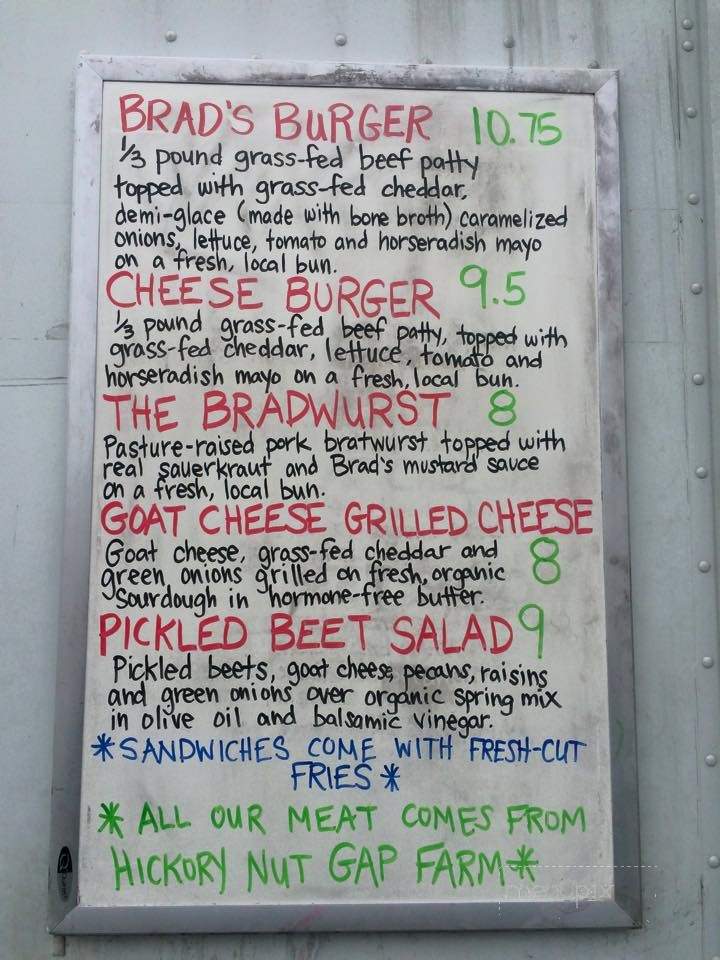 BRAD'S BURGER 10.75
1/3 pound grass-fed beef patty
topped with grass-fed cheddar,
demi-glace (made with bone broth) caramelized
onions, lettuce, tomato and horseradish mayo
on a fresh, local bun.
CHEESE BURGER 9.5
1/3 pound grass-fed beef patty, topped with
grass-fed cheddar, lettuce, tomato and
horseradish mayo on a fresh, local bun.
THE BRADWURST 8
Pasture-raised pork bratwurst topped with
real sauerkraut and Brad's mustard sauce
on a fresh, local bun.
GOAT CHEESE GRILLED CHEESE
Goat cheese, grass-fed cheddar and 8
green onions grilled on fresh, organic
sourdough in hormone-free butter.
PICKLED BEET SALAD 9
Pickled beets, goat cheese, pecans, raisins
and green onions over organic spring mix
in olive oil and balsamic vinegar.
*SANDWICHES COME WITH FRESH-CUT
FRIES*
* ALL OUR MEAT COMES FROM
HICKORY NUT GAP FARM*
menupix